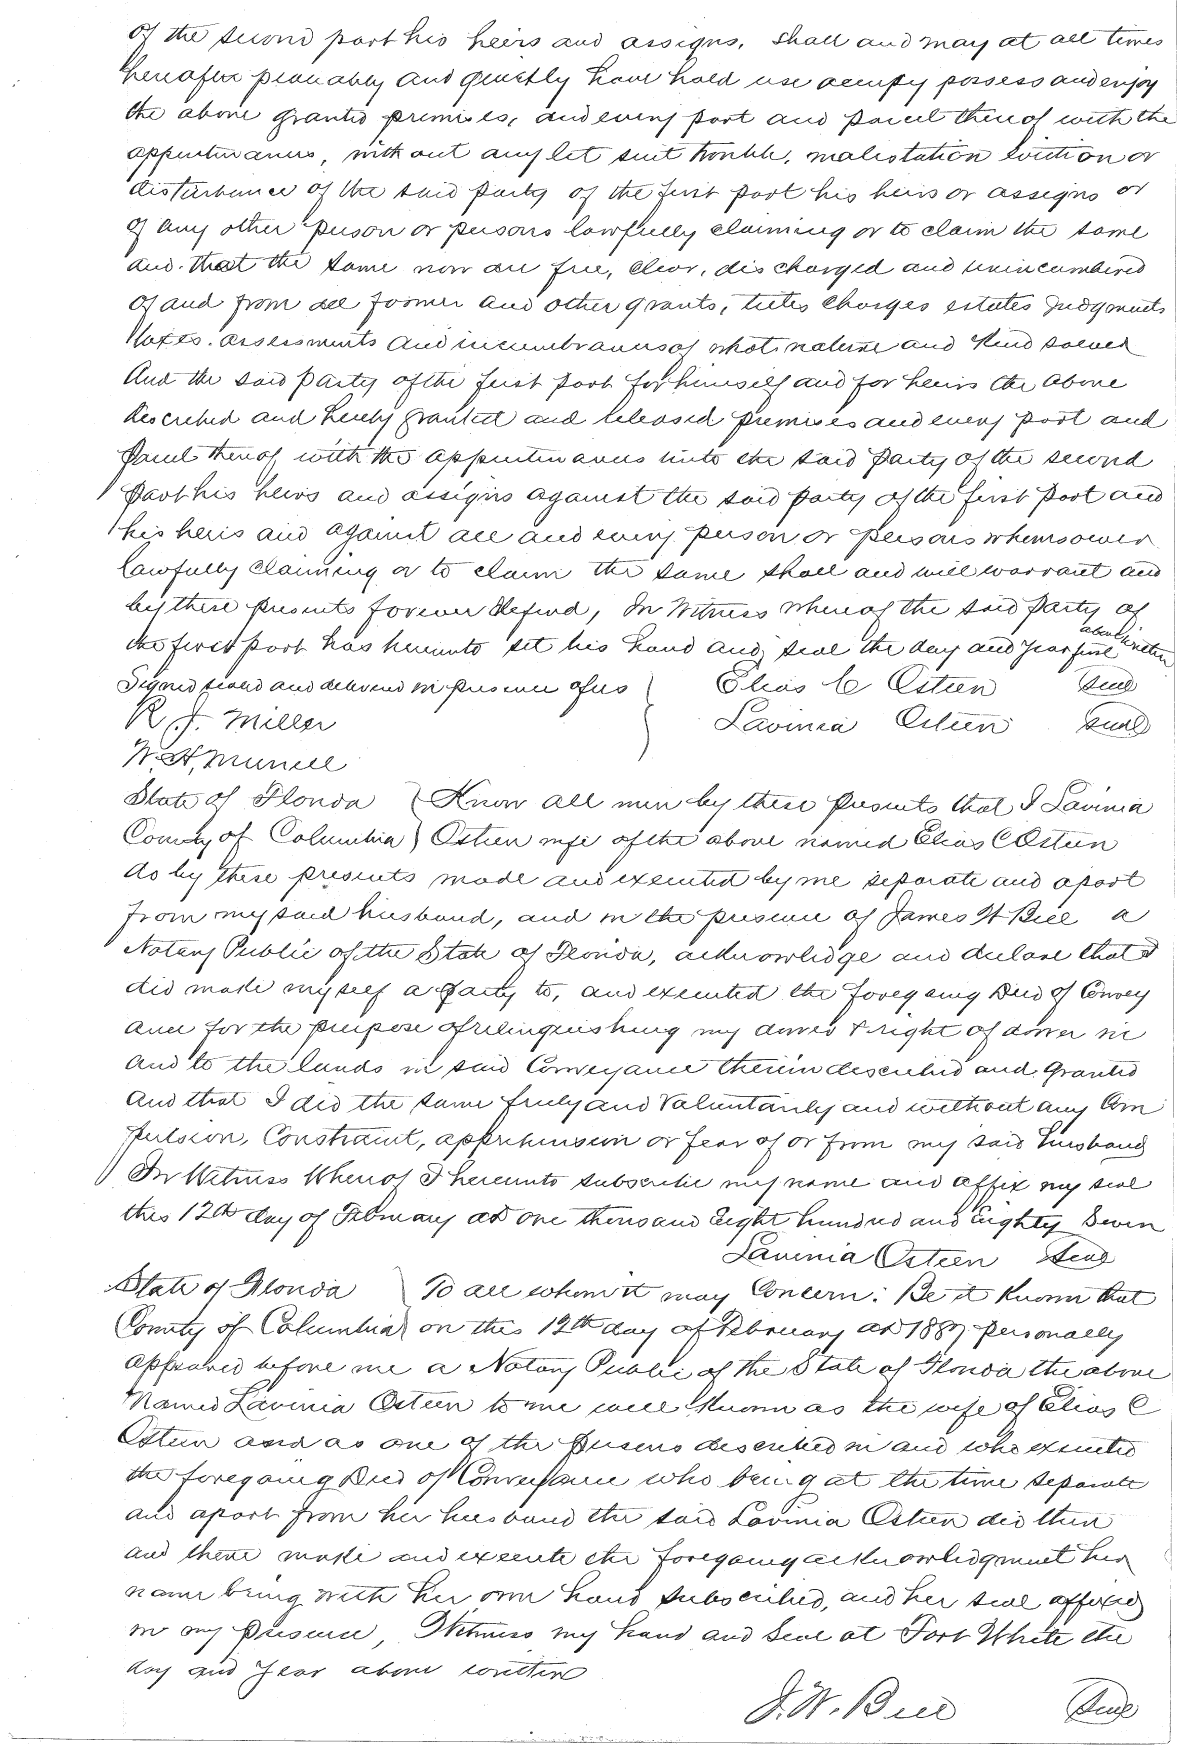 of the second part his heirs and assigns, shall and may at all times
hereafter peacably and quietly have hold use occupy possess and enjoy
the above granted premises, and every part and parcel thereof with the
appurtenances, without any let suit trouble, molestation eviction or
disturbance of the said party of the first part his heirs or assigns or
of any other person or persons lawfully claiming or to claim the same
and that the same now are free, clear, discharged and unincumbered
of and from all former and other grants, titles charges estates Judgments
taxes. assessments and incumbrances of what nature and Kind soever
And the said party of the first part for himself and for heirs the above
described and hereby granted and released premises and every part and
parcel thereof with the appurtenances unto the said party of the second
part his heirs and assigns against the said party of the first part and
his heirs and against all and every person or persons whomsoever
lawfully claiming or to claim the same shall and will warrant and
by these presents forever defend, In Witness whereof the said party of
the first part has hereunto set his hand and seal the day and year first above written
Signed sealed and delivered in presence of us Elias C Osteen Seal
R. J. Miller Lavinia Osteen Seal
W. H. 
State of Florida Know all men by these presents that I Lavinia
County of Columbia Osteen wife of the above named Elias C Osteen
do by these presents made and executed by me separate and apart
from my said husband, and in the presence of James W Bell a
Notary Public of the State of Florida, acknowledge and declare that I
did make myself a party to, and executed the foregoing Deed of Convey
ance for the purpose of relinquishing my dower & right of dower in
and to the lands in said Conveyance therein described and Granted
And that I did the same freely and Voluntarily and without any Com
pulsion, Constraint, apprehension or fear of or from my said husband
In Witness Whereof I hereunto subscribe my name and affix my seal
this 12th day of February AD one thousand Eight hundred and Eighty Seven
Lavinia Osteen Seal
State of Florida To all whom it may Concern: Be it Known that
County of Columbia on this 12th day of February AD 1887 personally
appeared before me a Notary Public of the State of Florida the above
Named Lavinia Osteen to me well Known as the wife of Elias C
Osteen and as one of the persons described in and who executed
the foregoing Deed of Conveyance who being at the time separate
and apart from her husband the said Lavinia Osteen did then
and there make and execute the foregoing acknowledgment her
name being with her own hand subscribed, and her seal affixed
in my presence, Witness my hand and Seal at Fort White the
day and Year above written
J. W. Bell Seal